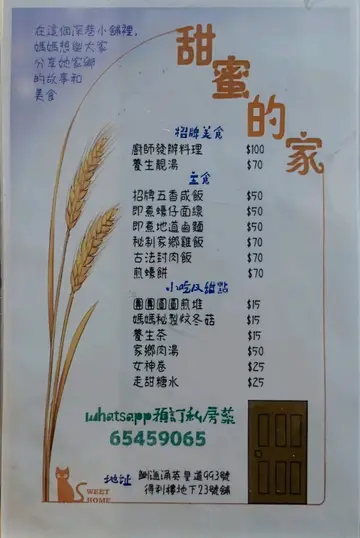 在這個深巷小舖裡,
媽媽想與大家
分享她家鄉
的故事和
美食
甜蜜的家
招牌美食
廚師發辦料理 $100
養生靚湯 $70
主食
招牌五香咸飯 $50
即煮蠔仔面線 $50
即煮地道鹵麵 $50
秘制家鄉雞飯 $70
古法封肉飯 $70
煎蠔餅 $70
小吃及甜點
團團圓圓煎堆 $15
媽媽秘製炆冬菇 $15
養生茶 $15
家鄉肉湯 $50
女神卷 $25
走甜糖水 $25
whatsapp預訂私房菜
65459065
地址 鰂魚涌英皇道993號
得利樓地下23號舖
SWEET
HOME